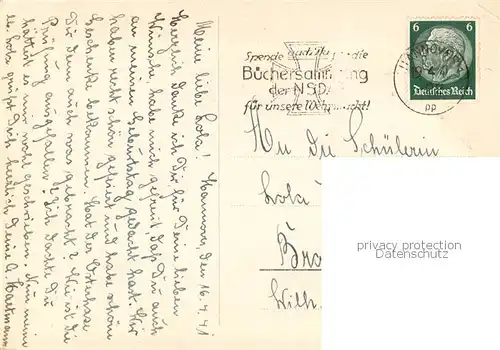 Meine liebe Lola! Hannover, den 16.4.41
Herzlich danke ich Dir für Deine lieben
Wünsche, habe mich gefreut daß Du auch
an meinen Geburtstag gedacht hast. Wir
haben recht schön gefeiert und habe schöne
Geschenke bekommen. Hat der Osterhase
Dir denn auch was gebracht? Wie ist die
Prüfung ausgefallen? Ich dachte Du
hättest es mir wohl geschrieben. Nun mein
lb. Lola grüßt Dich herzlich Deine A. Hartmann
Spende auch Du für die
Büchersammlung
der NSDAP
für unsere Wehrmacht!
HANNOVER
16.4.41
pp
6 6
Deutsches Reich
An die Schülerin
Lola
Bro
Wilh.
privacy protection
Datenschutz